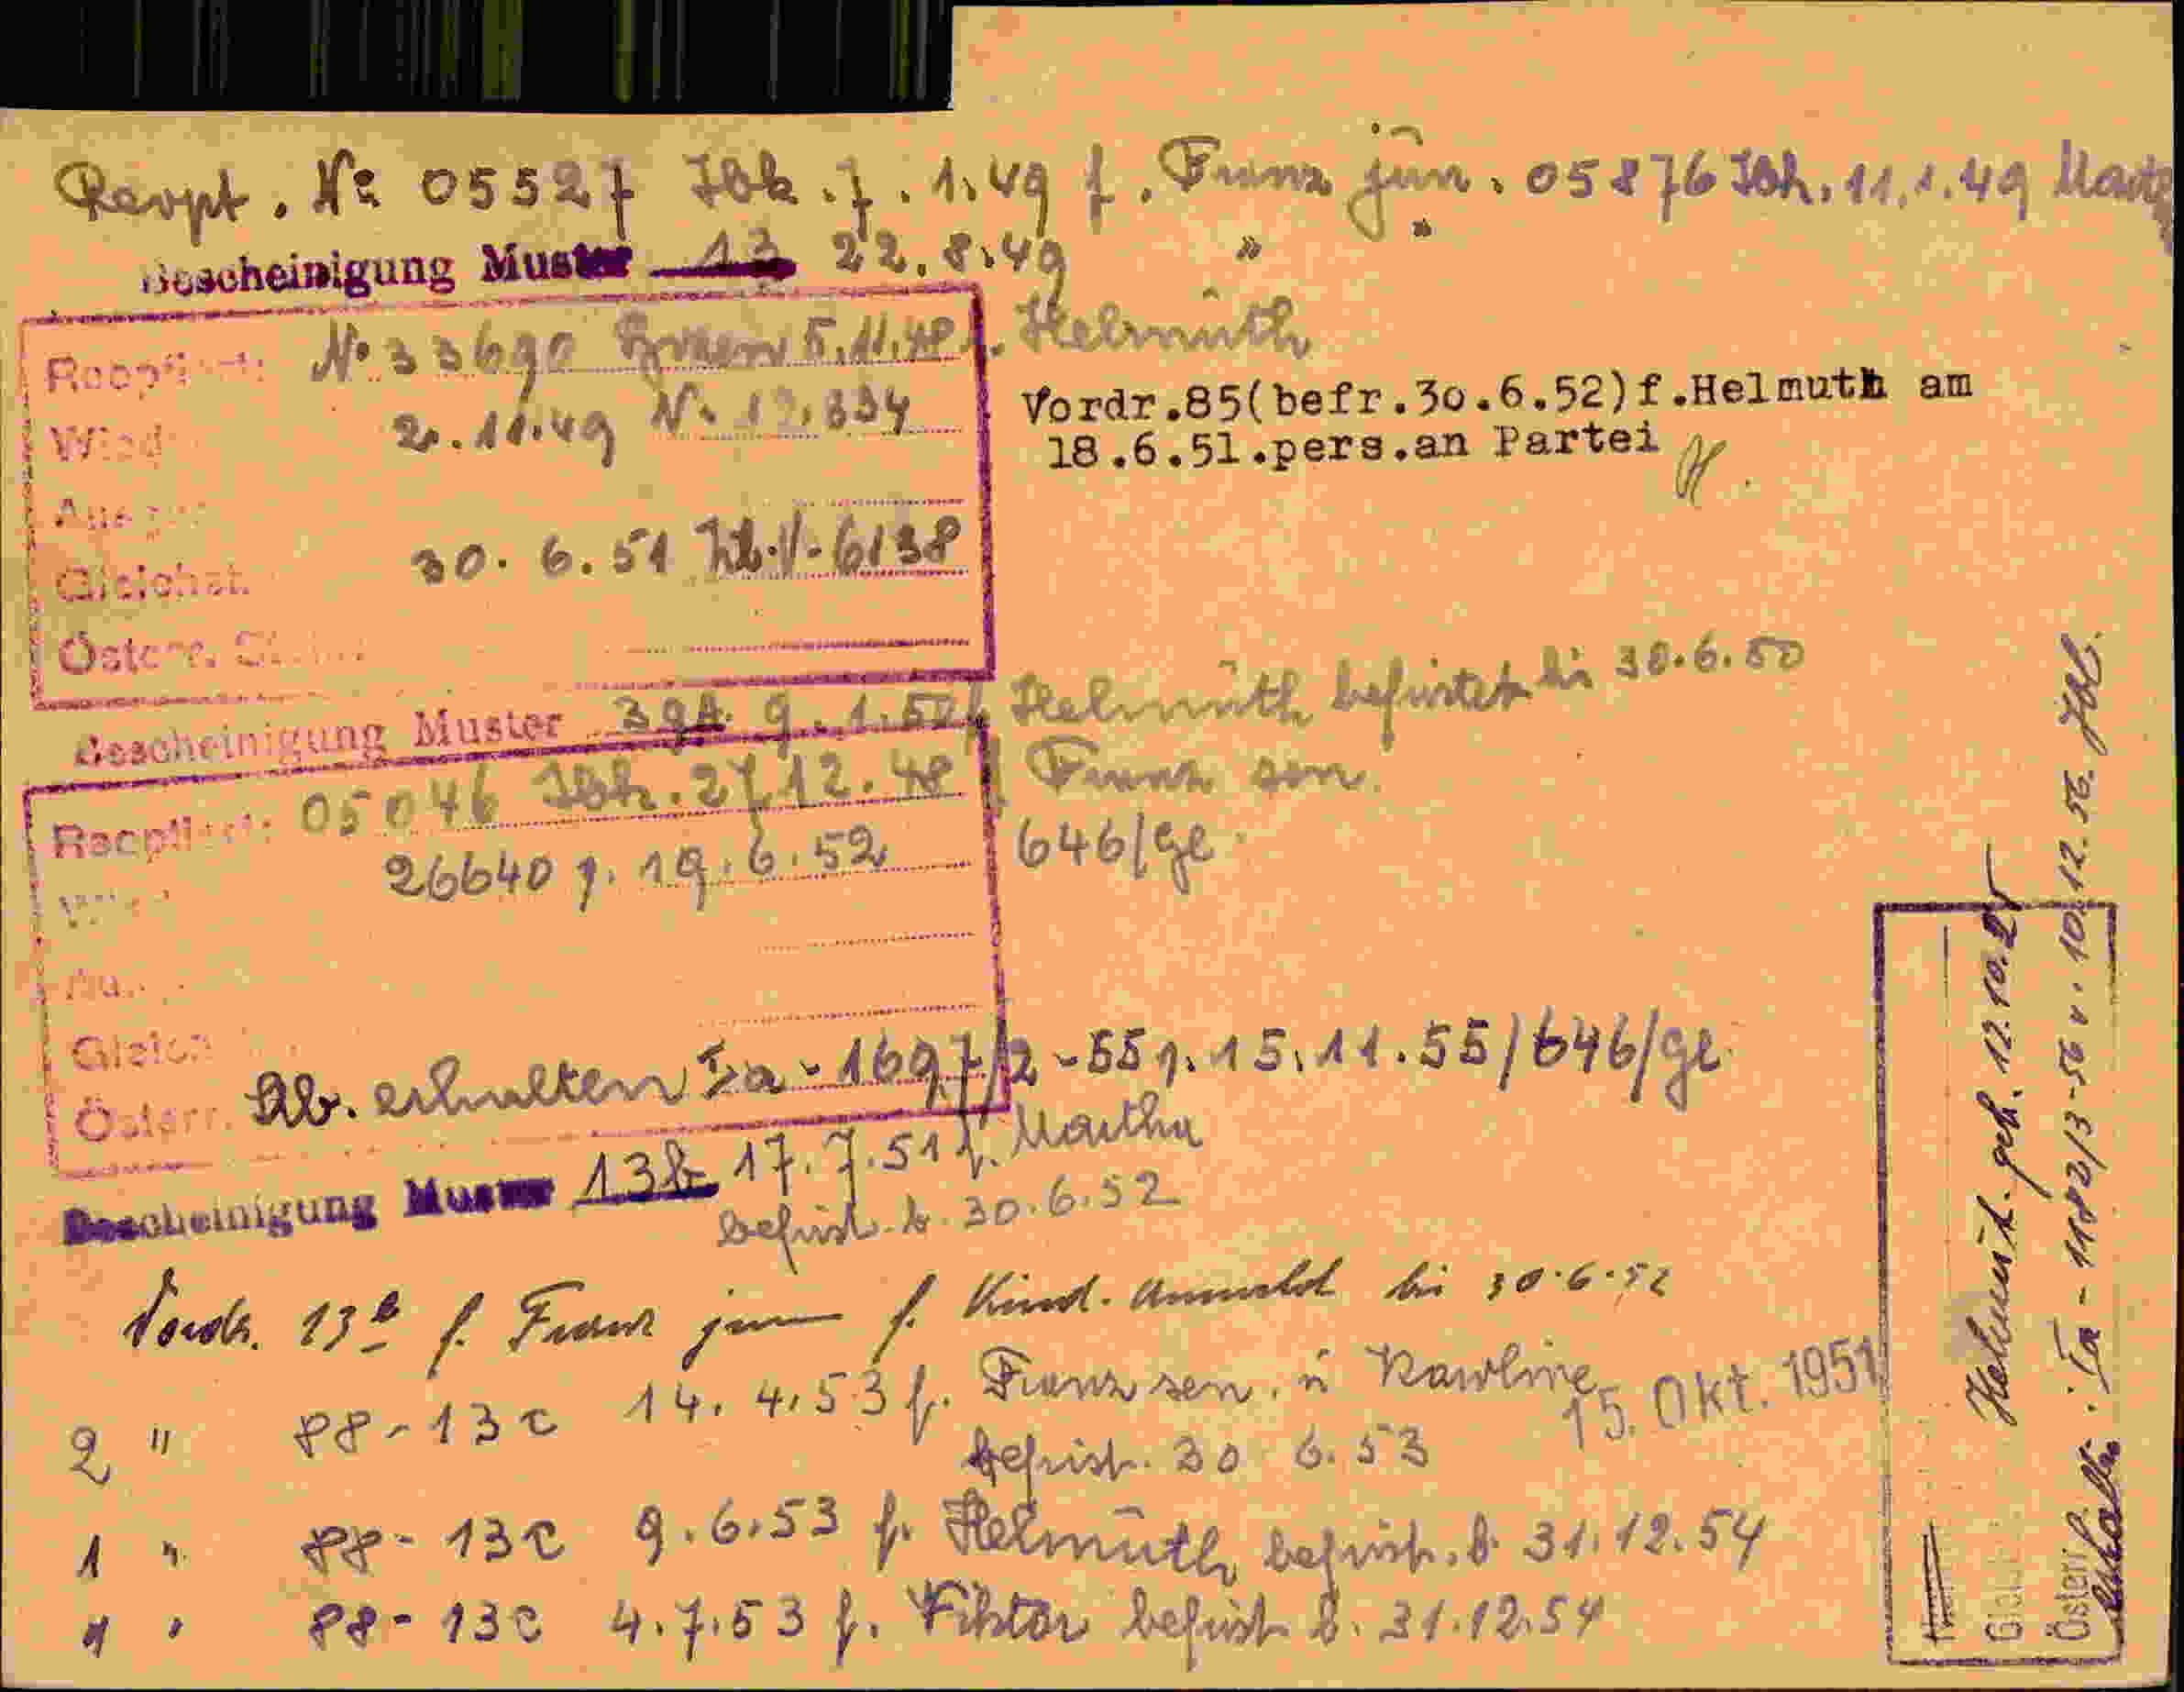 Reopt. No 05527 Ibk. 7. 1.49 f. Franz jun. 05876 Ibk. 11.1.49 Marth
Bescheinigung Muster 13 22.8.49 " "
Reopt No 33690 5.11.48 f. Helmuth
2.11.49 N. 12.334
Vordr.85(befr.30.6.52)f.Helmuth am
18.6.51.pers.an Partei
Gleichst. 30. 6. 51 6138
Österr.
Bescheinigung Muster 39A. 9. 1. 50 f. Helmuth befristet bis 30.6.50
Reopt 05046 Ibk. 27.12.48 f Franz sen.
26640 v. 19.6.52 646/ge
Gleich
Österr. Stb. erhalten Ia-1697/2-55 v. 15.11.55/646/ge
Bescheinigung Muster 13b 17.7.51 f. Martha
befrist. b. 30.6.52
Vordr. 13b f. Franz jun f. bis 30.6.52
15. Okt. 1951
2 " 88-13c 14. 4. 53 f. Franz sen. u Karoline
befrist. 30 6. 53
1 " 88-13c 9.6.53 f. Helmuth befrist. b. 31.12.54
1 " 88-13c 4.7.53 f. Viktor befrist b. 31.12.54
Helmuth geb. 12.10.25
Österr. erhalten: Ia-1182/3-56 v. 10.12.56.